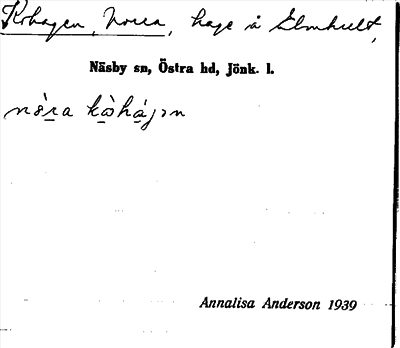 Kohagen, Norra, hage å Elmhult,
Näsby sn, Östra hd, Jönk. l.
nò̱ra kò̱há̱jən
Annalisa Anderson 1939